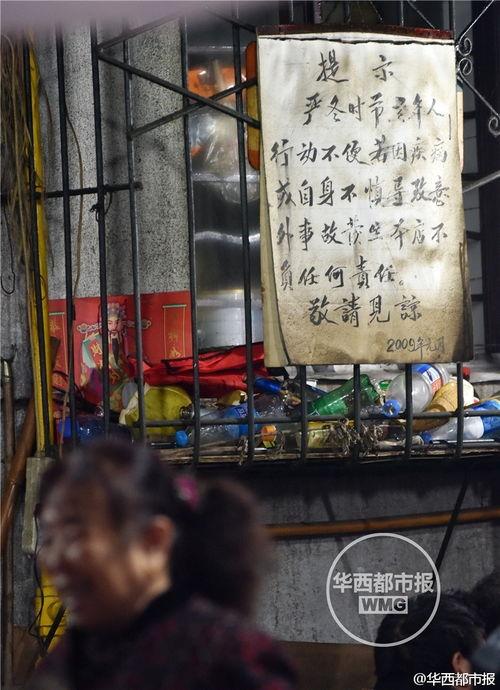 提示
严冬时节老年人
行动不便若因疾病
或自身不慎导致意
外事故发生本店不
负任何责任。
敬請見諒
2009年元月
华西都市报
WMG
@华西都市报